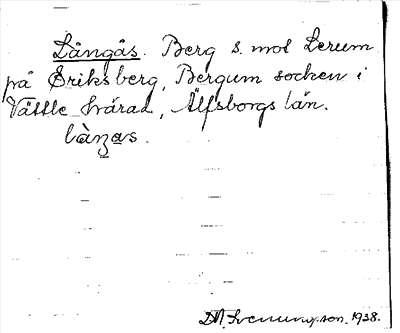 Långås. Berg s. mot Lerum
på Eriksberg, Bergum socken i
Vättle härad, Älfsborgs län.
làŋas.
1938.